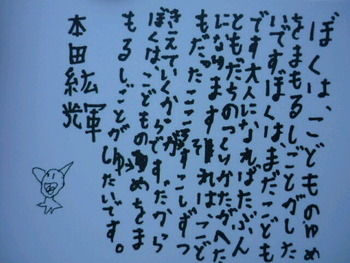 ぼくは、こどものゆめ
をまもるしごとがした
いですぼくはまだこども
です大人になればたぶん
ともだちのつくりかたがへた
になります それはこど
もだったこころがすこしずつ
きえていくからですだから
ぼくはこどものゆめをま
もるしごとがしたいです。
本田紘輝